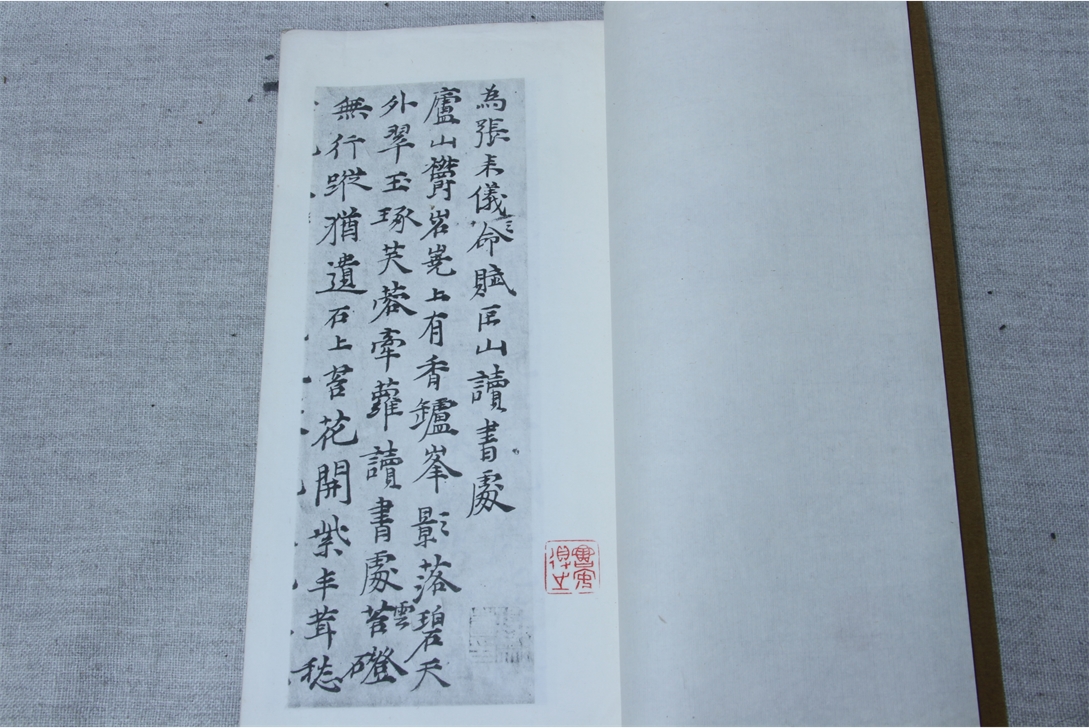 為張来儀命賦匡山讀書處
廬山欝岧嶤上有香鑪峯影落碧天
外翠玉琢芙蓉牽蘿讀書處苔雲磴
無行蹤猶遺石上苔花開紫丰茸愁